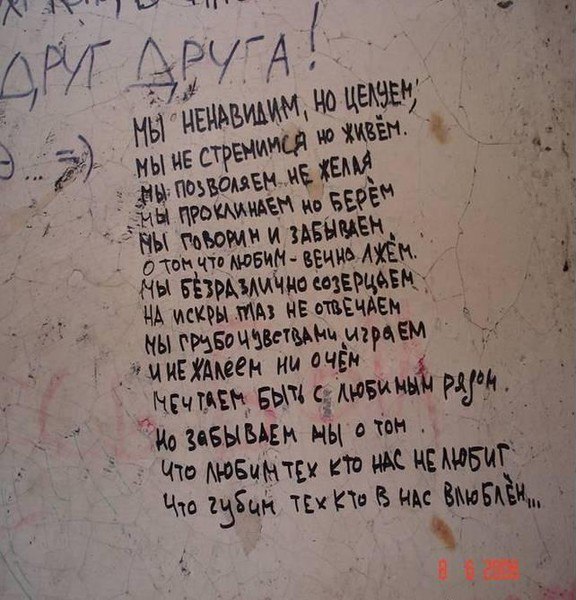 ДРУГ ДРУГА!
... =)
МЫ НЕНАВИДИМ, НО ЦЕЛУЕМ,
МЫ НЕ СТРЕМИМСЯ НО ЖИВЁМ.
МЫ ПОЗВОЛЯЕМ НЕ ЖЕЛАЯ
МЫ ПРОКЛИНАЕМ НО БЕРЁМ
МЫ ГОВОРИМ И ЗАБЫВАЕМ
О ТОМ ЧТО ЛЮБИМ - ВЕЧНО ЛЖЁМ.
МЫ БЕЗРАЗЛИЧНО СОЗЕРЦАЕМ
НА ИСКРЫ ГЛАЗ НЕ ОТВЕЧАЕМ
МЫ ГРУБО ЧУВСТВАМИ ИГРАЕМ
И НЕ ЖАЛЕЕМ НИ О ЧЁМ
МЕЧТАЕМ БЫТЬ С ЛЮБИМЫМ РЯДОМ.
НО ЗАБЫВАЕМ МЫ О ТОМ.
ЧТО ЛЮБИМ ТЕХ КТО НАС НЕ ЛЮБИТ
ЧТО ГУБИМ ТЕХ КТО В НАС ВЛЮБЛЁН...
8 6 2006